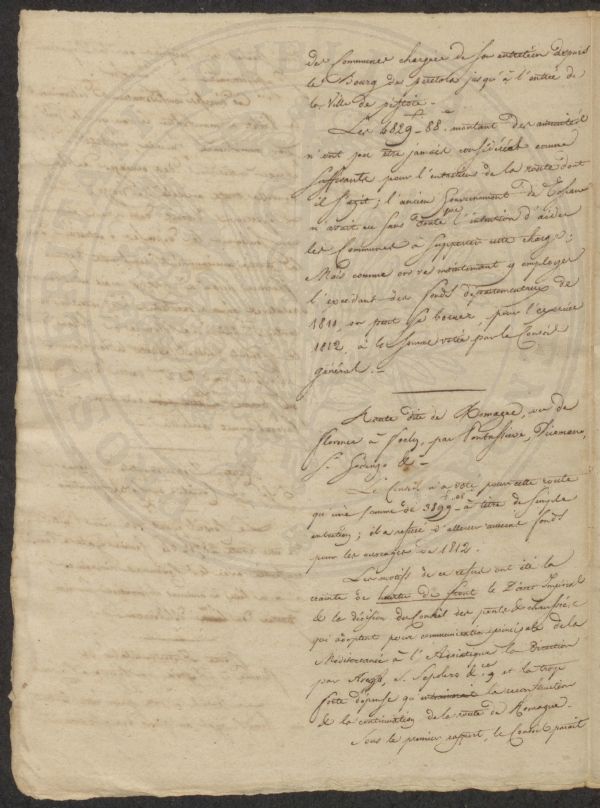 des Communes chargées de son entretien depuis
le Bourg de peretola jusqu'à l'entrée de
la Ville de pistoie.
Les 4829-88 montant des annuités
n'ont pu être jamais considérées comme
suffisantes pour l'entretien de la route dont
il s'agit; l'ancien Gouvernement de Toscane
n'avait eu sans doute que l'intention d'aider
les Communes à supporter cette charge;
Mais comme on va maintenant y employer
l'excédant des fonds départementaux de
1811, on peut se borner, pour l'exercice
1812, à la Somme votée par le Conseil
général.
Route dite de Romagne, ou de
florence à forly, par Pontassieve, Dicomano,
St. Godenzo &
Le Conseil n'a voté pour cette route
qu'une somme de 3899 à titre de simple
entretien; il a refusé d'allouer aucuns fonds
pour les ouvrages de 1812.
Les motifs de ce refus ont été la
crainte de heurter de front le Décret Impérial
& la décision du Conseil des ponts & chaussées
qui adoptent pour communication principale de la
Méditerranée à l'Adriatique la direction
par Arezzo, S. Sepolcro & et la trop
forte dépense qu'entrainait la reconstruction
& la continuation de la route de Romagne.
Sous le premier rapport, le Conseil paraît